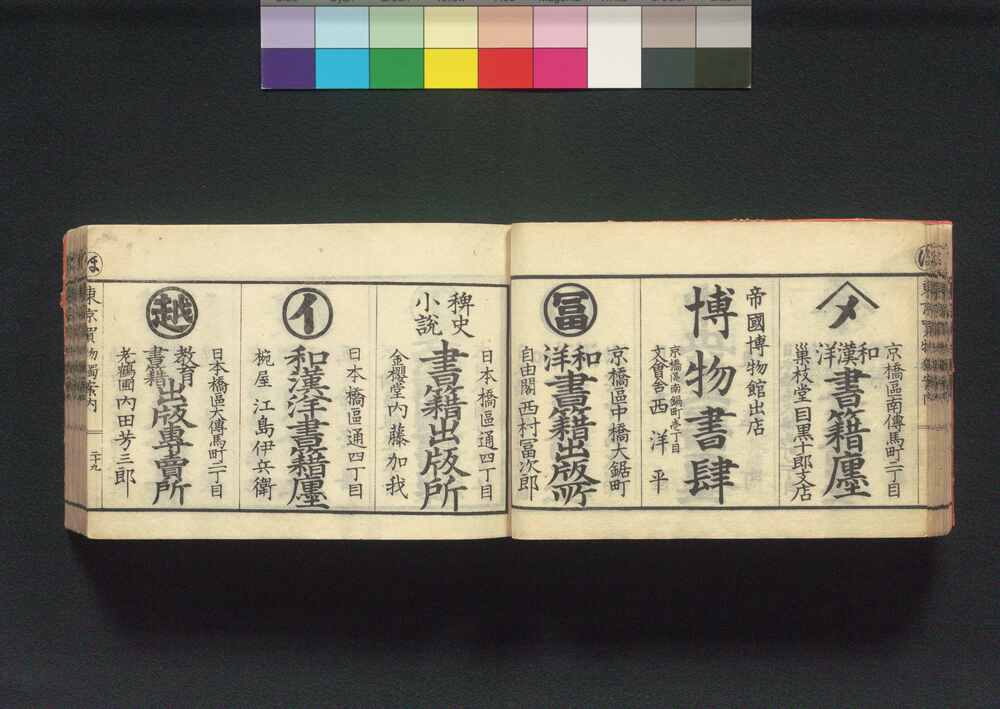 メ
京橋區南傳馬町二丁目
和漢洋
書籍廛
巣枝堂目黒十郎支店
帝國博物館出店
博物書肆
京橋區南鍋町壱丁目
文會舎 西洋平
冨
京橋區中橋大鋸町
和洋
書籍出版所
自由閣 西村冨次郎
日本橋區通四丁目
稗史
小説
書籍出版所
金櫻堂 内藤加我
イ
日本橋區通四丁目
和漢洋書籍廛
椀屋 江島伊兵衛
越
日本橋區大傳馬町二丁目
教育
書籍
出版專賣所
老鶴圃 内田芳三郎
ほ
東京買物獨案内
二十九